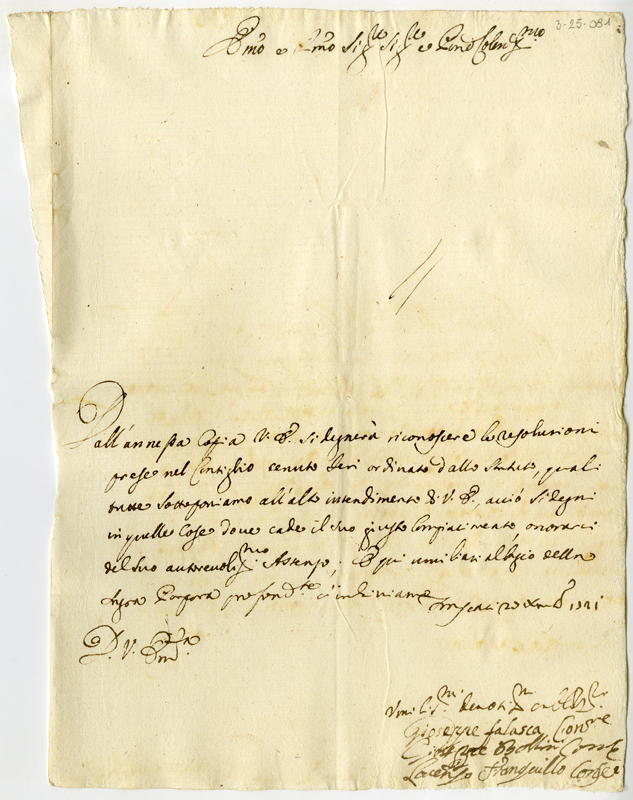 3-25-081
Emo e Rmo Sigre Sigre e Prone Colenmo
Dall'annessa Copia V. E. si degnerà riconoscere le resoluzioni
prese nel Consiglio tenuto Ieri ordinato dallo Statuto, quali
tutte sottoponiamo all'alto intendimento di V. E., acciò si degni
in quelle Cose dove cade il suo giusto Compiacimento, onorarci
del suo autorevolmo Assenso; E qui umiliati al bacio della
Sagra Porpora profondte c'inchiniamo
Frascati 29 Xmb
D. V. Emza
Umilimi Devotimi
Gioseppe falasca Consre
Gioseppe Consre
Lorenzo Tranquillo Consre